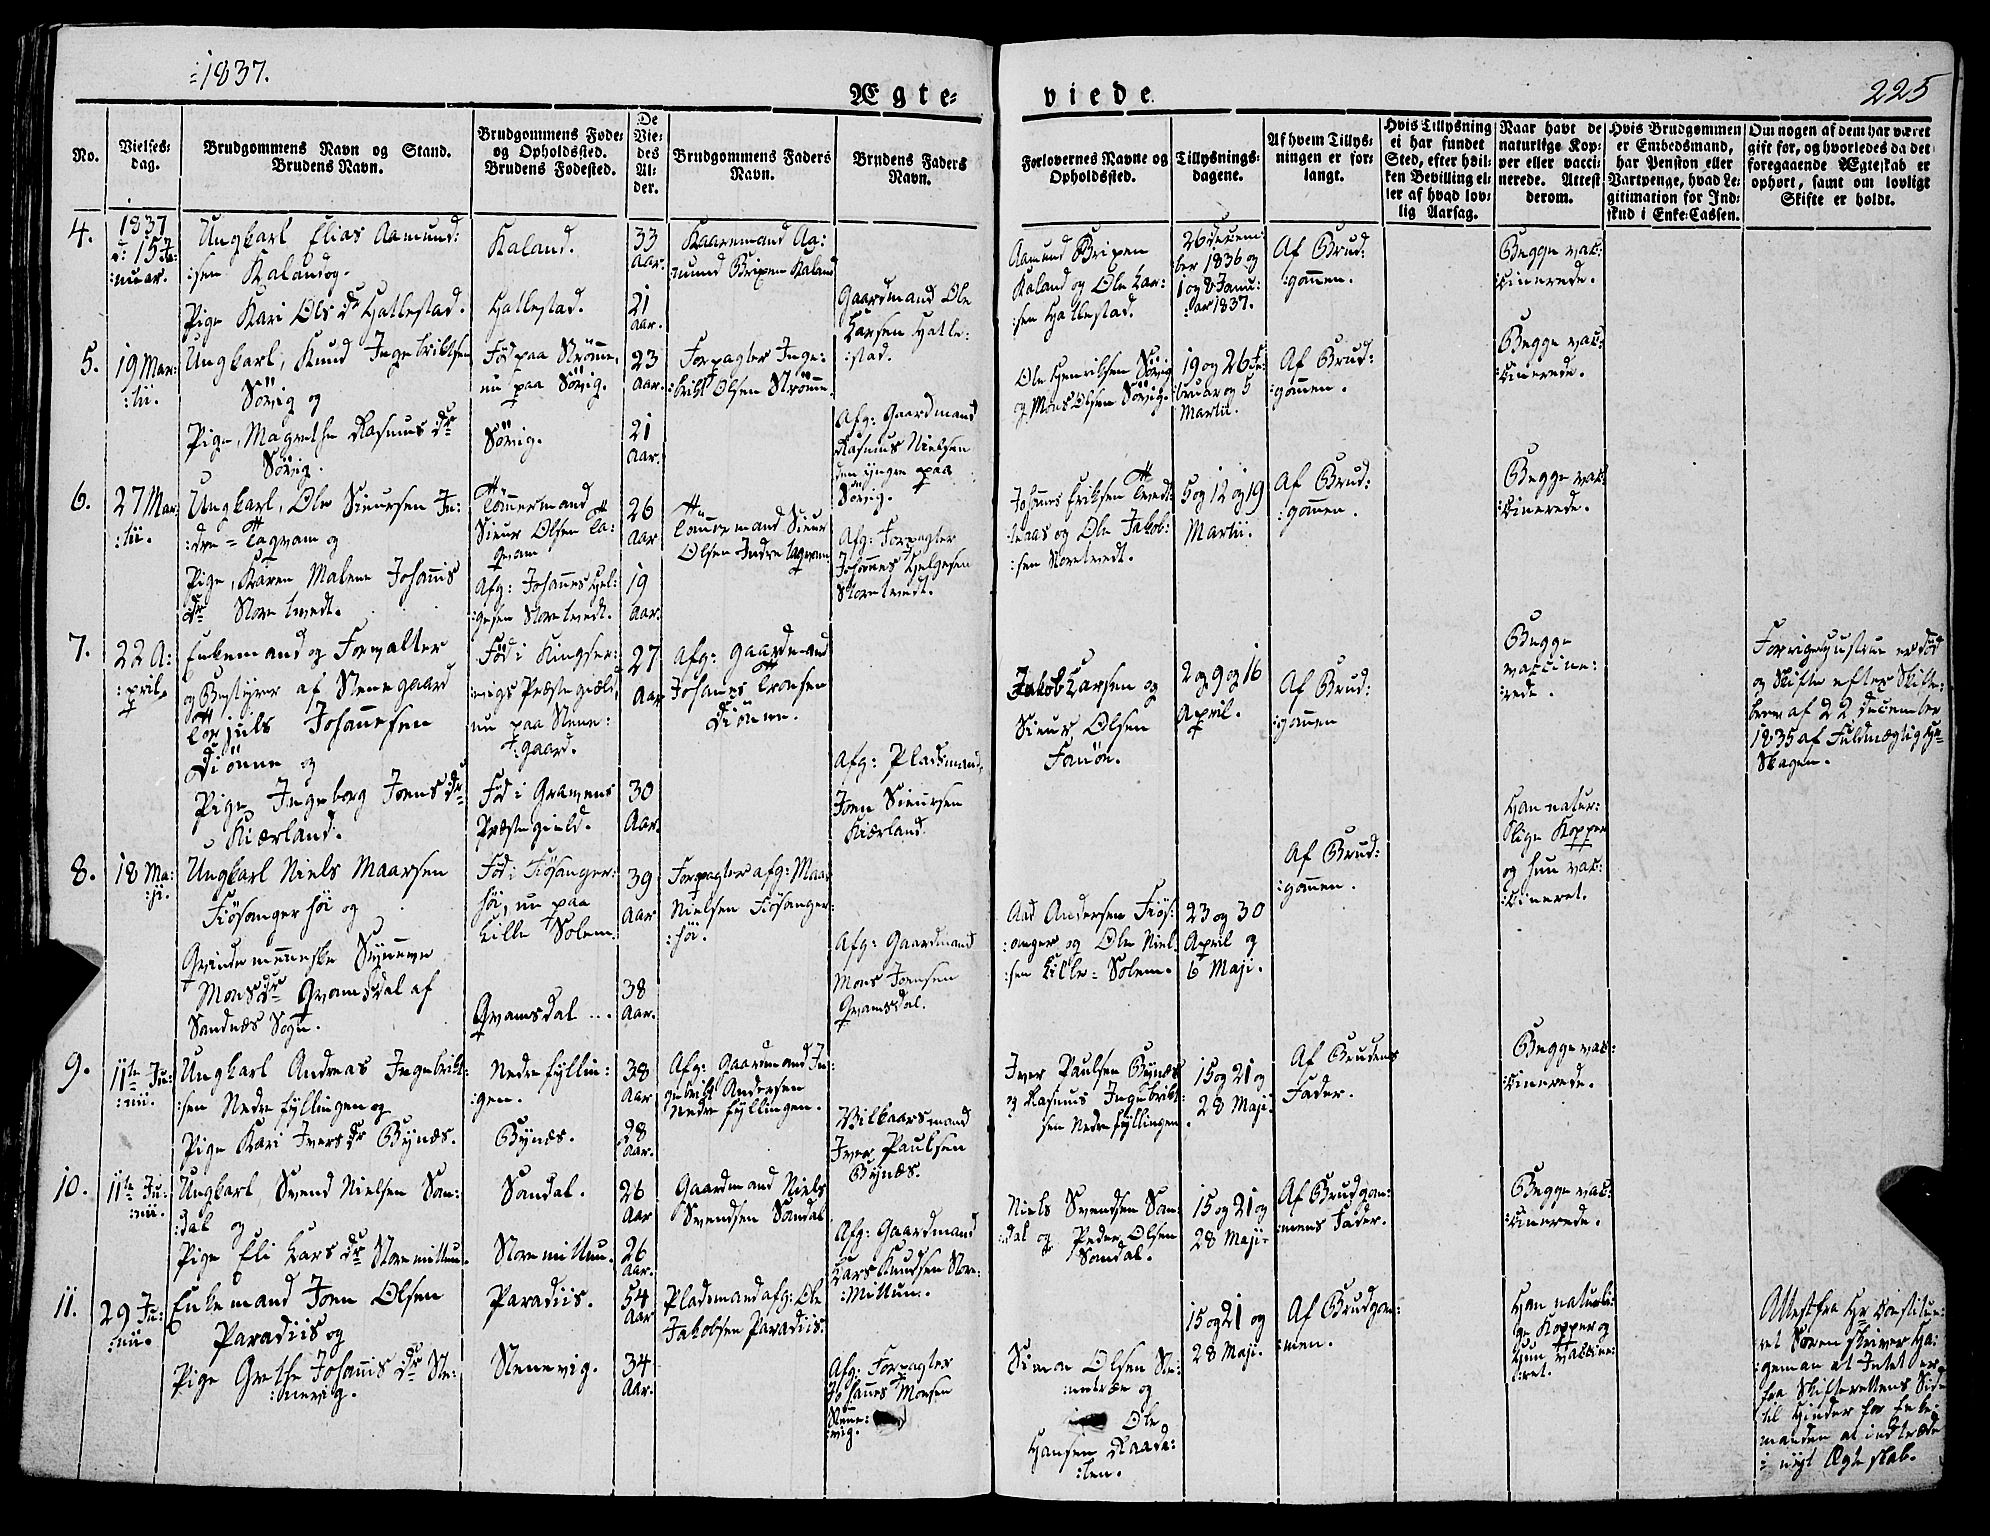 1837.
Ægte-
viede.
225
No.
Vielses-
dag.
Brudgommens Navn og Stand.
Brudens Navn.
Brudgommens Føde-
og Opholdssted.
Brudens Fødested.
De
Vie-
des
Al-
der.
Brudgommens Faders
Navn.
Brudens Faders
Navn.
Forlovernes Navne og
Opholdssted.
Tillysnings-
dagene.
Af hvem Tillys-
ningen er for-
langt.
Hvis Tillysning
ei har fundet
Sted, efter hvil-
ken Bevilling el-
ler af hvad lov-
lig Aarsag.
Naar havt de
naturlige Kop-
per eller vacci-
nerede. Attest
derom.
Hvis Brudgommen
er Embedsmand,
har Pension eller
Vartpenge, hvad Le-
gitimation for Ind-
skud i Enke-Cassen.
Om nogen af dem har været
gift før, og hvorledes da det
foregaaende Ægteskab er
ophørt, samt om lovligt
Skifte er holdt.
4.
1837
d: 15 Ja-
:nuar.
Ungkarl Elias Aamund:
:sen Kaland og
Pige Kari Ols dr Hatlestad.
Kaland.
Hatlestad.
33
Aar.
21
Aar.
Kaaremand Aa:
:mund Brixen Kaland
Gaardmand Ole
Larsen Hatle:
:stad.
Aamund Brixen
Kaland og Ole Lar:
:sen Hatlestad.
26 Decem:
ber 1836 og
1 og 8 Janu:
:ar 1837.
Af Brud:
:gommen.
Begge vac:
:cinerede.
5.
19 Mar:
:tii.
Ungkarl, Knud Ingebriktsen
Sövig og
Pige, Magrethe Rasmus dr
Sövig.
Föd paa Strømme,
nu paa Sövig.
Sövig.
23
Aar.
21
Aar.
Forpagter Inge:
:brikt Olsen Strømme.
Afg: Gaardmand
Rasmus Nielsen
den yngre paa
Sövig.
Ole Henriksen Sövig
og Mons Olsen Sövig.
19 og 26 Fe:
:bruar og 5
Martii.
Af Brud:
:gommen.
Begge vac:
:cinerede.
6.
27 Mar:
:tii.
Ungkarl, Ole Siursen In:
:dre = Laqvam og
Pige, Karen Malene Johannis
dr Storetvedt.
Tömmermand
Siur Olsen La:
qvam
Afg: Johannes Hel:
:gesen Storetvedt.
26
Aar
19
Aar.
Tömmermand Siur
Olsen Indre Laqvam
Afg: Forpagter
Johannes Helgesen
Storetvedt.
Johannes Eriksen Tvedt:
:teraas og Ole Jakob:
:sen Storetvedt.
5 og 12 og 19
Martii.
Af Brud:
:gommen.
Begge vac:
:cinerede.
7.
22 A:
:pril.
Enkemand og Forvalter
og Bestyrer af Stenegaard
Torjuls Johannesen
Diönne og
Pige Ingeborg Joens dr
Kiærland.
Föd i Kingser:
:vigs Præstegield,
nu paa Stene:
:gaard.
Föd i Gravens
Præstegield.
27
Aar
30
Aar.
Afg: Gaardmand
Johannes Tronsen
Diönne.
Afg: Pladsmand,
Joen Siursen
Kiærland.
Jakob Larsen og
Siur Olsen
Fanöe.
2 og 9 og 16
April.
Af Brud:
:gommen
Begge
vaccine:
:rede.
Forrige Hustrue er död
og Skifte efter Skifte:
brev af 22 December
1835 af Fuldmægtig
Skagen.
8.
18 Ma:
:ji.
Ungkarl Niels Maarsen
Fiösanger höi og
Qvindemenneske Synneve
Mons dr Qvamsdal af
Sandnæs Sogn.
Föd i Fiösanger:
höi, nu paa
Lille Solem.
Qvamsdal ...
39
Aar
38
Aar.
Forpagter afg: Maar
Nielsen Fiösanger:
:höi.
Afg: Gaardmand
Mons Joensen
Qvamsdal.
Aad Andersen Fiös:
:anger og Ole Niel:
:sen Lille = Solem.
23 og 30
April og
6 Maji.
Af Brud:
:gommen.
Han natur:
:lige Kopper
og hun vac:
:cineret.
9.
11te Ju:
:nii.
Ungkarl Andreas Ingebrikt:
:sen Nedre fyllingen og
Pige Kari Ivers dr Bynæs.
Nedre fyllin:
:gen.
Bynæs.
38
Aar
28
Aar.
Afg: Gaardmand In:
gebrikt Andersen
Nedre fyllingen.
Vilkaarsmand
Iver Paulsen
Bynæs.
Iver Paulsen Bynæs
og Rasmus Ingebrikt:
:sen Nedre fyllingen
15 og 21 og
28 Maji.
Af Brudens
Fader.
Begge vac:
:cinerede.
10.
11te Ju:
:nii.
Ungkarl, Svend Nielsen San:
:dal og
Pige Eli Lars dr Store mittun.
Sandal.
Store mittun.
26
Aar
26
Aar.
Gaardmand Niels
Svendsen Sandal
Afg: Gaardmand
Lars Knudsen Store:
:Mittun.
Niels Svendsen San:
:dal og Peder Olsen
Sandal.
15 og 21 og
28 Maji
Af Brudgom:
:mens Fader.
Begge vac:
:cinerede.
11.
29 Ju:
:nii.
Enkemand Joen Olsen
Paradiis og
Pige Grethe Johannis dr Ste:
:nevig.
Paradiis.
Stenevig.
54
Aar
34
Aar.
Pladsmand afg: Ole
Jakobsen Paradiis.
Afg: Forpagter
Johannes Monsen
Stene:
:vig.
Simon Olsen Ste:
og
Ole
Hansen Raade:
:len.
15 og 21 og
28 Maji.
Af Brudgom:
:men.
Han naturli:
ge Kopper og
hun vaccine:
:ret.
Attest fra Hr Constitue:
ret Sorenskriver Ha:
geman at Intet er
fra Skifterettens Side
til Hinder for Enke:
manden at indtræde
i nyt Ægteskab.